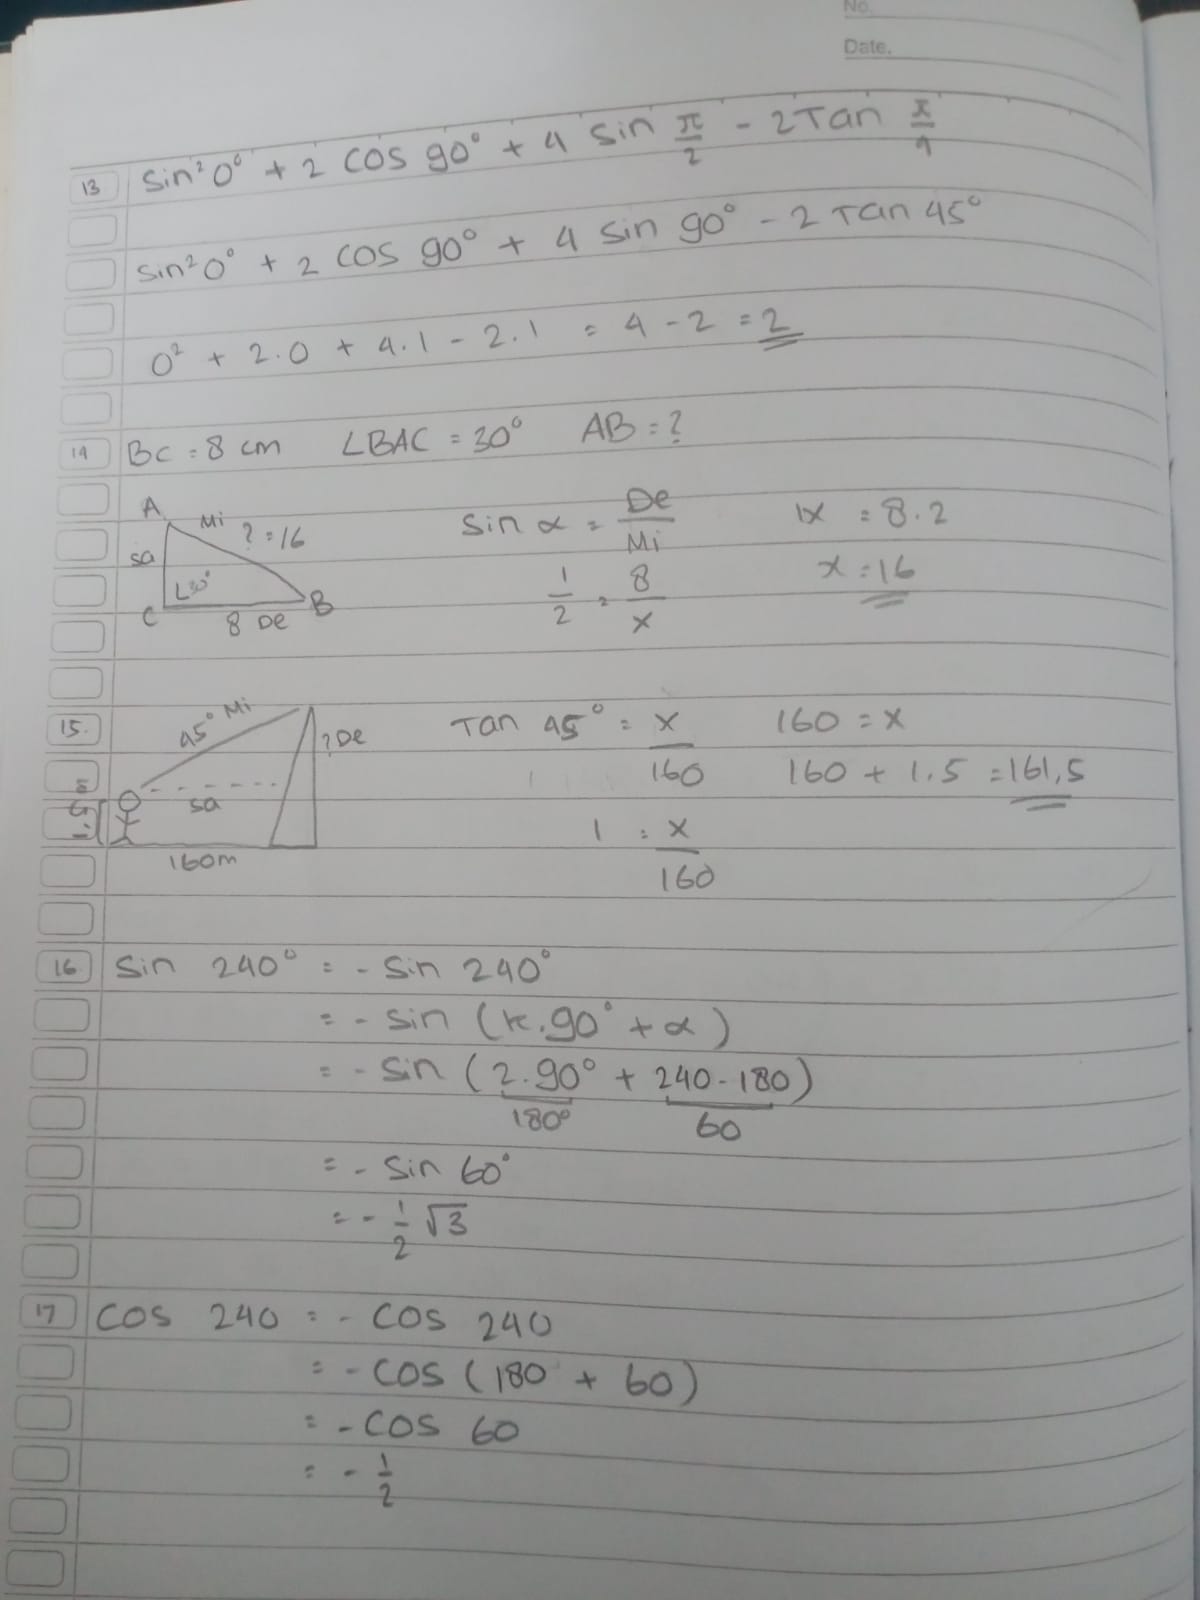 No.
Date.
13 Sin²0° + 2 cos 90° + 4 sin π/2 - 2 Tan π/4
Sin²0° + 2 cos 90° + 4 sin 90° - 2 Tan 45°
0² + 2.0 + 4.1 - 2.1 = 4 - 2 = 2
14 BC = 8 cm ∠BAC = 30° AB = ?
A Mi ? = 16
sa
∠30°
C 8 De B
Sin α = De/Mi
1/2 = 8/x
1x = 8.2
x = 16
15. 45° Mi
? De
sa
1,5 m
160m
Tan 45° = x/160
1 = x/160
160 = x
160 + 1.5 = 161,5
16 Sin 240° = - Sin 240°
= - sin (k.90° + α)
= - sin (2.90° + 240-180)
180° 60
= - sin 60°
= - 1/2 √3
17 COS 240 = - COS 240
= - COS (180 + 60)
= - COS 60
= - 1/2